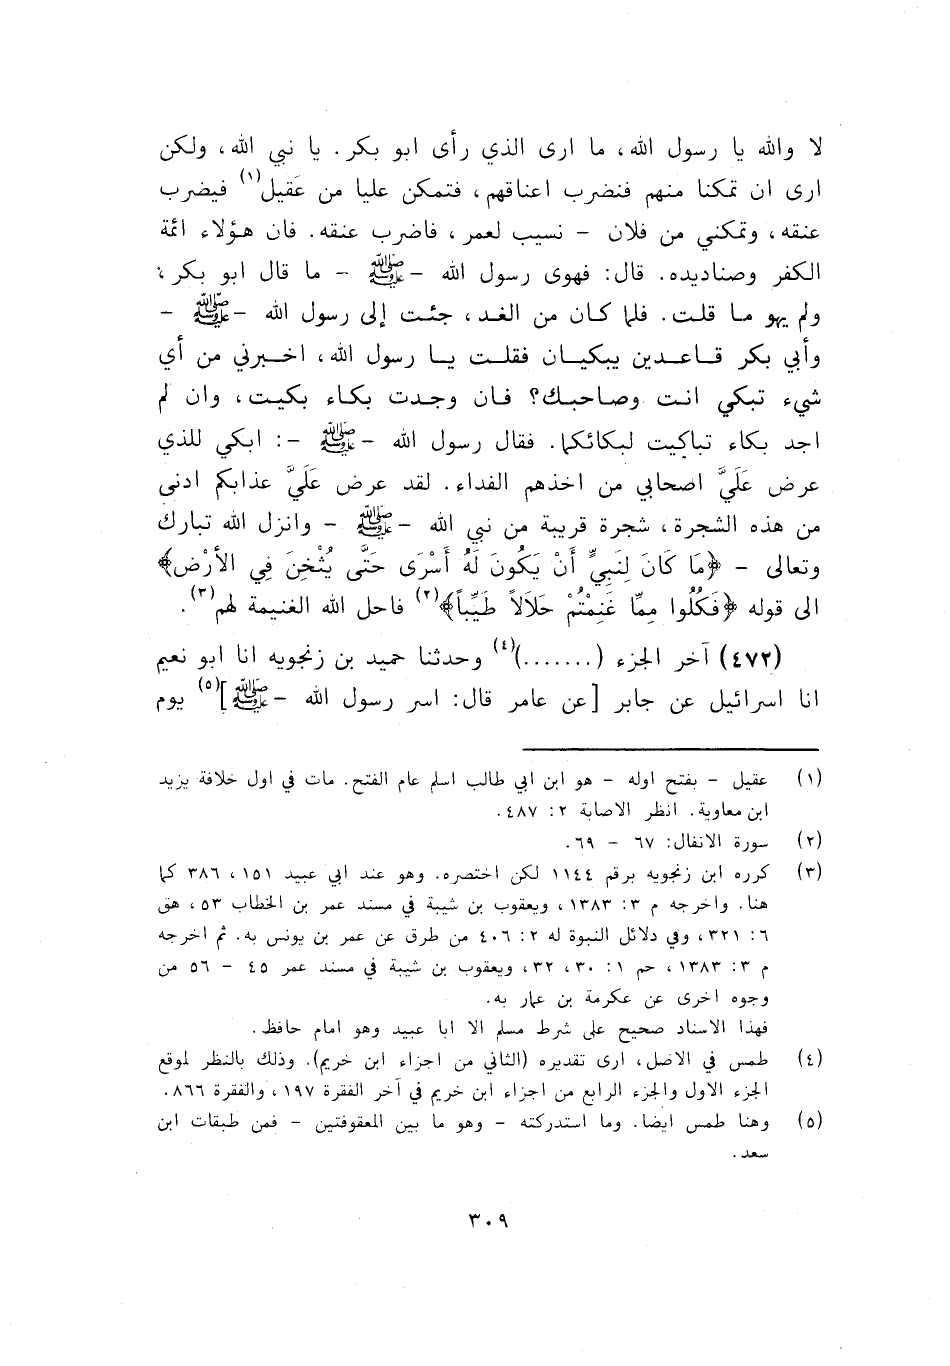 لا والله يا رسول الله، ما ارى الذي رأى ابو بكر. يا نبي الله، ولكن
ارى ان تمكنا منهم فنضرب اعناقهم، فتمكن عليا من عَقيل(١) فيضرب
عنقه، وتمكني من فلان - نسيب لعمر، فاضرب عنقه. فان هؤلاء ائمة
الكفر وصناديده. قال: فهوى رسول الله -ﷺ - ما قال ابو بكر،
ولم يهو ما قلت. فلما كان من الغد، جئت إلى رسول الله -ﷺ -
وأبي بكر قاعدين يبكيان فقلت يا رسول الله، اخبرني من أي
شيء تبكي انت وصاحبك؟ فان وجدت بكاء بكيت، وان لم
اجد بكاء تباكيت لبكائكما. فقال رسول الله -ﷺ -: ابكي للذي
عرض عَلَيَّ اصحابي من اخذهم الفداء. لقد عرض عَلَيَّ عذابكم ادنى
من هذه الشجرة، شجرة قريبة من نبي الله -ﷺ - وانزل الله تبارك
وتعالى - ﴿مَا كَانَ لِنَبِيٍّ أَنْ يَكُونَ لَهُ أَسْرَى حَتَّى يُثْخِنَ فِي الأَرْض﴾
الى قوله ﴿فَكُلُوا مِمَّا غَنِمْتُمْ حَلَالاً طَيِّباً﴾(٢) فاحل الله الغنيمة لهم(٣).
(٤٧٢) آخر الجزء (.......)(٤) وحدثنا حميد بن زنجويه انا ابو نعيم
انا اسرائيل عن جابر [عن عامر قال: اسر رسول الله -ﷺ](٥) يوم
(١) عقيل - بفتح اوله - هو ابن ابي طالب اسلم عام الفتح. مات في اول خلافة يزيد
ابن معاوية. انظر الاصابة ٢: ٤٨٧.
(٢) سورة الانفال: ٦٧ - ٦٩.
(٣) كرره ابن زنجويه برقم ١١٤٤ لكن اختصره. وهو عند ابي عبيد ١٥١، ٣٨٦ كما
هنا. واخرجه م ٣: ١٣٨٣، ويعقوب بن شيبة في مسند عمر بن الخطاب ٥٣، هق
٦: ٣٢١، وفي دلائل النبوة له ٢: ٤٠٦ من طرق عن عمر بن يونس به. ثم اخرجه
م ٣: ١٣٨٣، حم ١: ٣٠، ٣٢، ويعقوب بن شيبة في مسند عمر ٤٥ - ٥٦ من
وجوه اخرى عن عكرمة بن عمار به.
فهذا الاسناد صحيح على شرط مسلم الا ابا عبيد وهو امام حافظ.
(٤) طمس في الاصل، ارى تقديره (الثاني من اجزاء ابن خريم). وذلك بالنظر لموقع
الجزء الاول والجزء الرابع من اجزاء ابن خريم في آخر الفقرة ١٩٧، والفقرة ٨٦٦.
(٥) وهنا طمس ايضا. وما استدركته - وهو ما بين المعقوفتين - فمن طبقات ابن
سعد.
٣٠٩